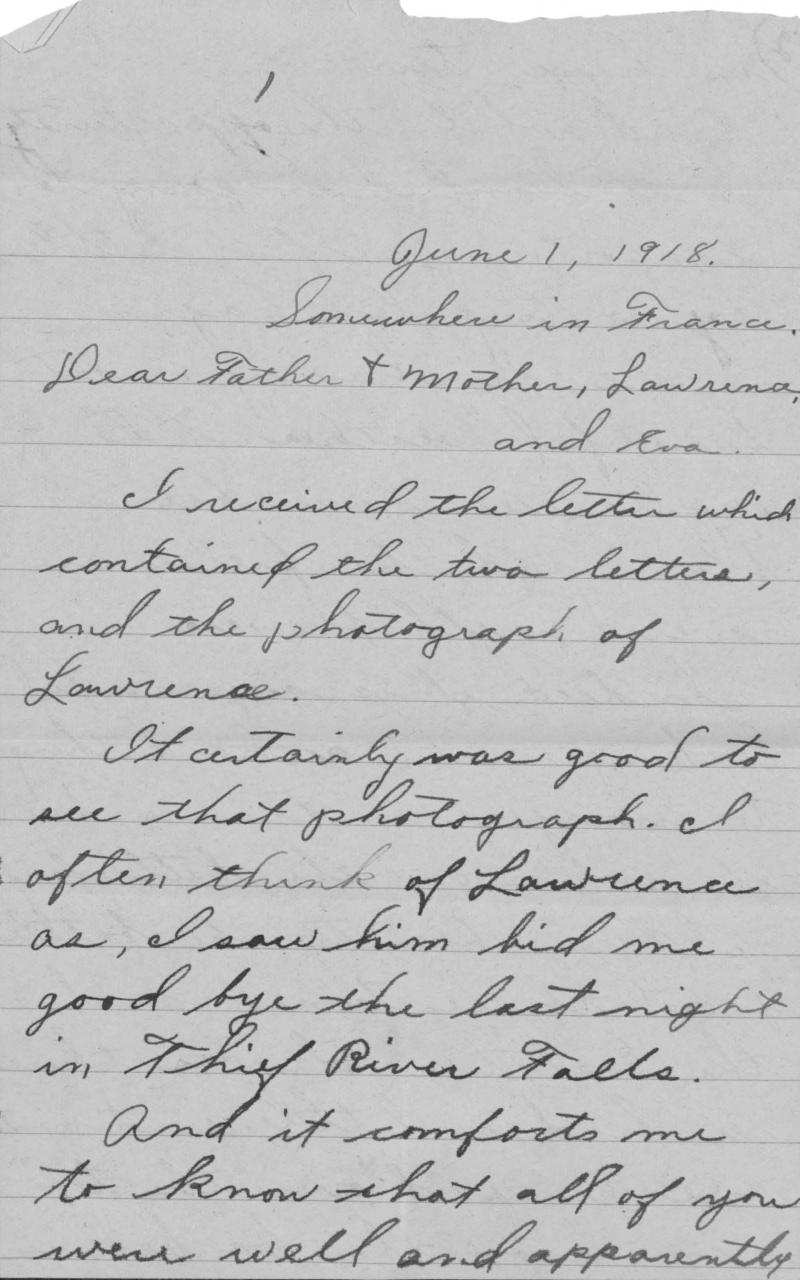 1
June 1, 1918.
Somewhere in France.
Dear Father & Mother, Lawrence,
and Eva.
I received the letter which
contained the two letters,
and the photograph of
Lawrence.
It certainly was good to
see that photograph. I
often think of Lawrence
as, I saw him bid me
good bye the last night
in Thief River Falls.
And it comforts me
to know that all of you
were well and apparently